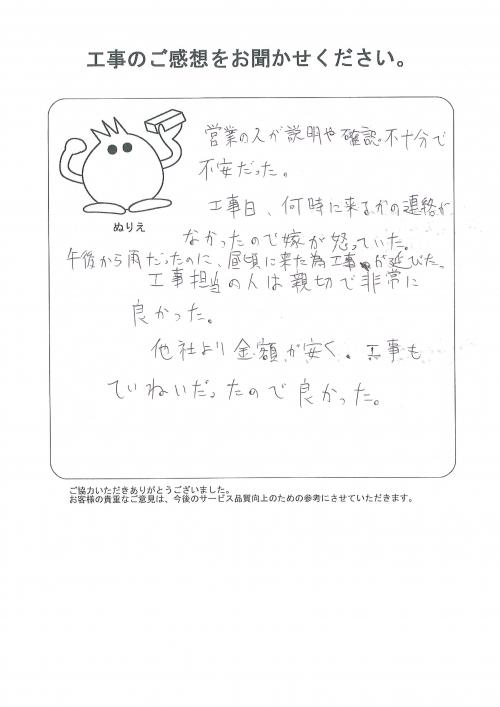 工事のご感想をお聞かせください。
営業の人が説明や確認不十分で
不安だった。
工事日、何時に来るかの連絡が
なかったので嫁が怒っていた。
午後から雨だったのに、昼頃に来た為工事が延びた。
工事担当の人は親切で非常に
良かった。
他社より金額が安く、工事も
ていねいだったので良かった。
ぬりえ
ご協力いただきありがとうございました。
お客様の貴重なご意見は、今後のサービス品質向上のための参考にさせていただきます。